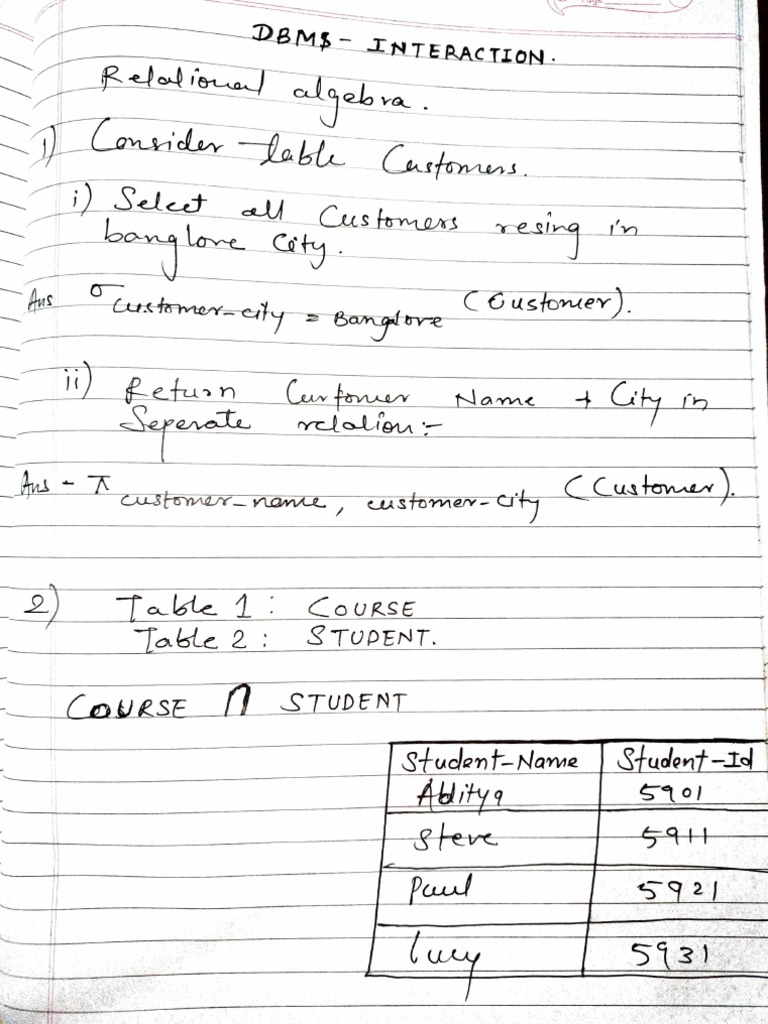 DBMS - INTERACTION.
Relational algebra.
1) Consider table Customers.
i) Select all Customers resing in
banglore City.
Ans σ customer-city = Banglore (Customer).
ii) Return Curtomer Name + City in
Seperate relation:-
Ans - π customer-name, customer-city (Customer).
2) Table 1 : COURSE
Table 2 : STUDENT.
COURSE ∩ STUDENT
Student-Name Student-Id
Abditya 5901
Steve 5911
Paul 5921
lucy 5931